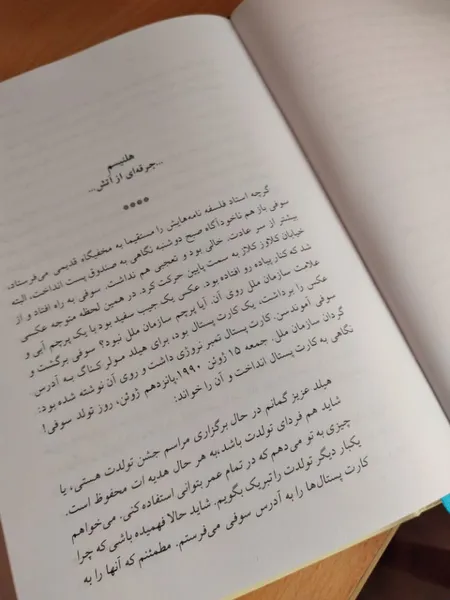 هلنیسم
...جرقه‌ای از آتش...
****
گرچه استاد فلسفه نامه‌هایش را مستقیما به مخفیگاه قدیمی می‌فرستاد،
سوفی باز هم ناخودآگاه صبح دوشنبه نگاهی به صندوق پست انداخت، البته
بیشتر از سر عادت. خالی بود و تعجبی هم نداشت. سوفی به راه افتاد و از
خیابان کلاوز کلاز به سمت پایین حرکت کرد. در همین لحظه متوجه عکسی
شد که کنار پیاده رو افتاده بود. عکس یک جیپ سفید بود با یک پرچم آبی و
علامت سازمان ملل روی آن. آیا پرچم سازمان ملل نبود؟ سوفی برگشت و
عکس را برداشت، یک کارت پستال بود، برای هیلد مولر کناگ به آدرس
سوفی آموند سن. کارت پستال تمبر نروژی داشت و روی آن نوشته شده بود:
گردان سازمان ملل. جمعه ۱۵ ژوئن ۱۹۹۰. پانزدهم ژوئن، روز تولد سوفی!
نگاهی به کارت پستال انداخت و آن را خواند:
هیلد عزیز گمانم در حال برگزاری مراسم جشن تولدت هستی، یا
شاید هم فردای تولدت باشد، به هر حال هدیه ات محفوظ است.
چیزی به تو می‌دهم که در تمام عمر بتوانی استفاده کنی. می‌خواهم
یکبار دیگر تولدت را تبریک بگویم. شاید حالا فهمیده باشی که چرا
کارت پستال‌ها را به آدرس سوفی می‌فرستم. مطمئنم که آنها را به